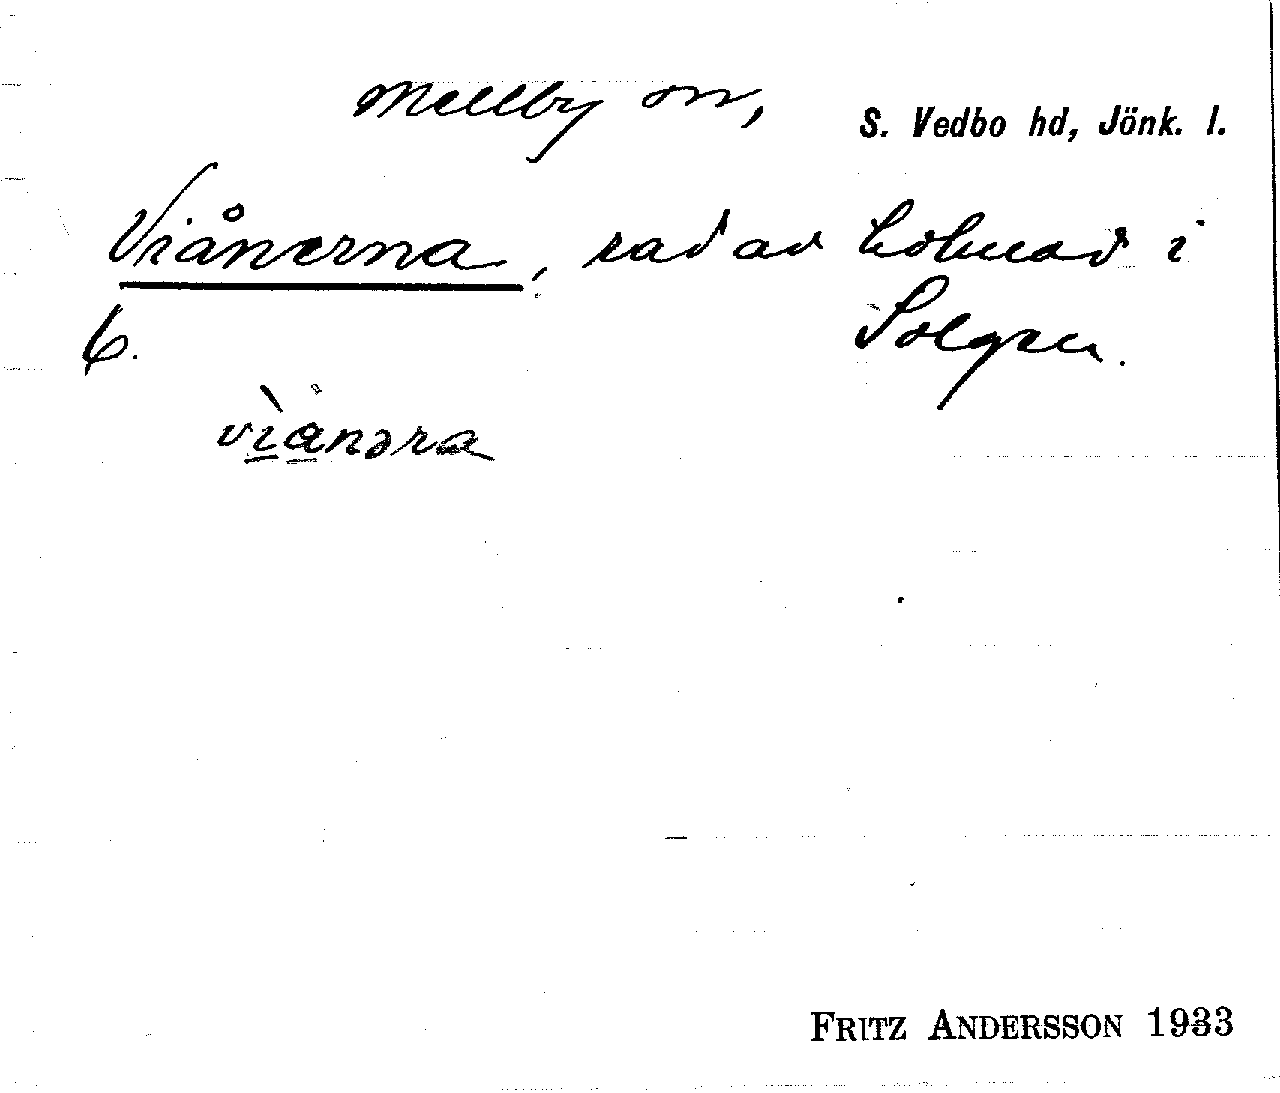 Mellby sn,
S. Vedbo hd, Jönk. l.
Viånerna, rad av holmar i
Solgen.
6.
viånəra
FRITZ ANDERSSON 1933